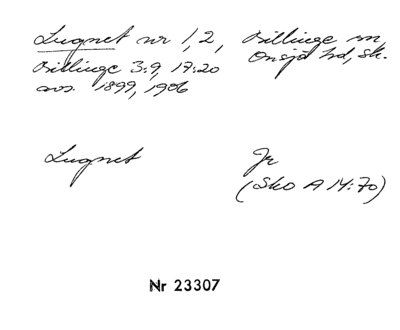 Lugnet nr 1, 2, Billinge sn,
Onsjö hd, Sk.
Billinge 3:9, 17:20
avs. 1899, 1906
Lugnet Jr
(Sko A 14:70)
Nr 23307